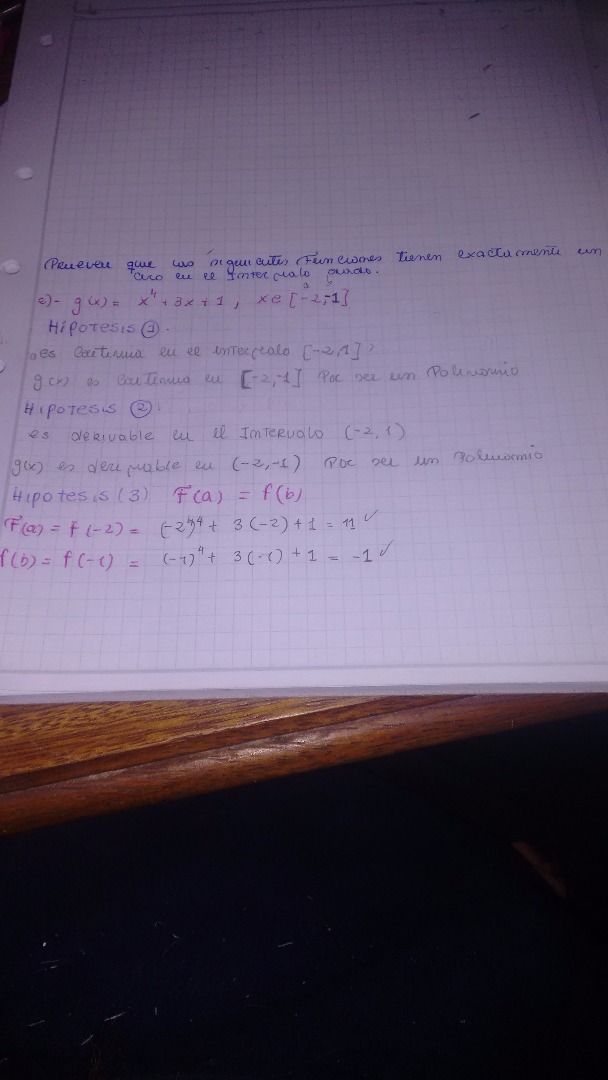 Prueven que las siguientes Funciones tienen exactamente un
cero en el Intervalo dado.
a b
c)- g(x) = x⁴ + 3x + 1 , x∈ [-2,-1]
Hipotesis ①.
es Continua en el intervalo [-2,1]
g(x) es Continua en [-2,-1] Por ser un Polinomio
Hipotesis ②.
es derivable en el Intervalo (-2,1)
g(x) es derivable en (-2,-1) Por ser un Polinomio
Hipotesis (3) F(a) = f(b)
F(a) = f(-2) = (-2)⁴ + 3(-2) + 1 = 11 ✓
f(b) = f(-1) = (-1)⁴ + 3(-1) + 1 = -1 ✓